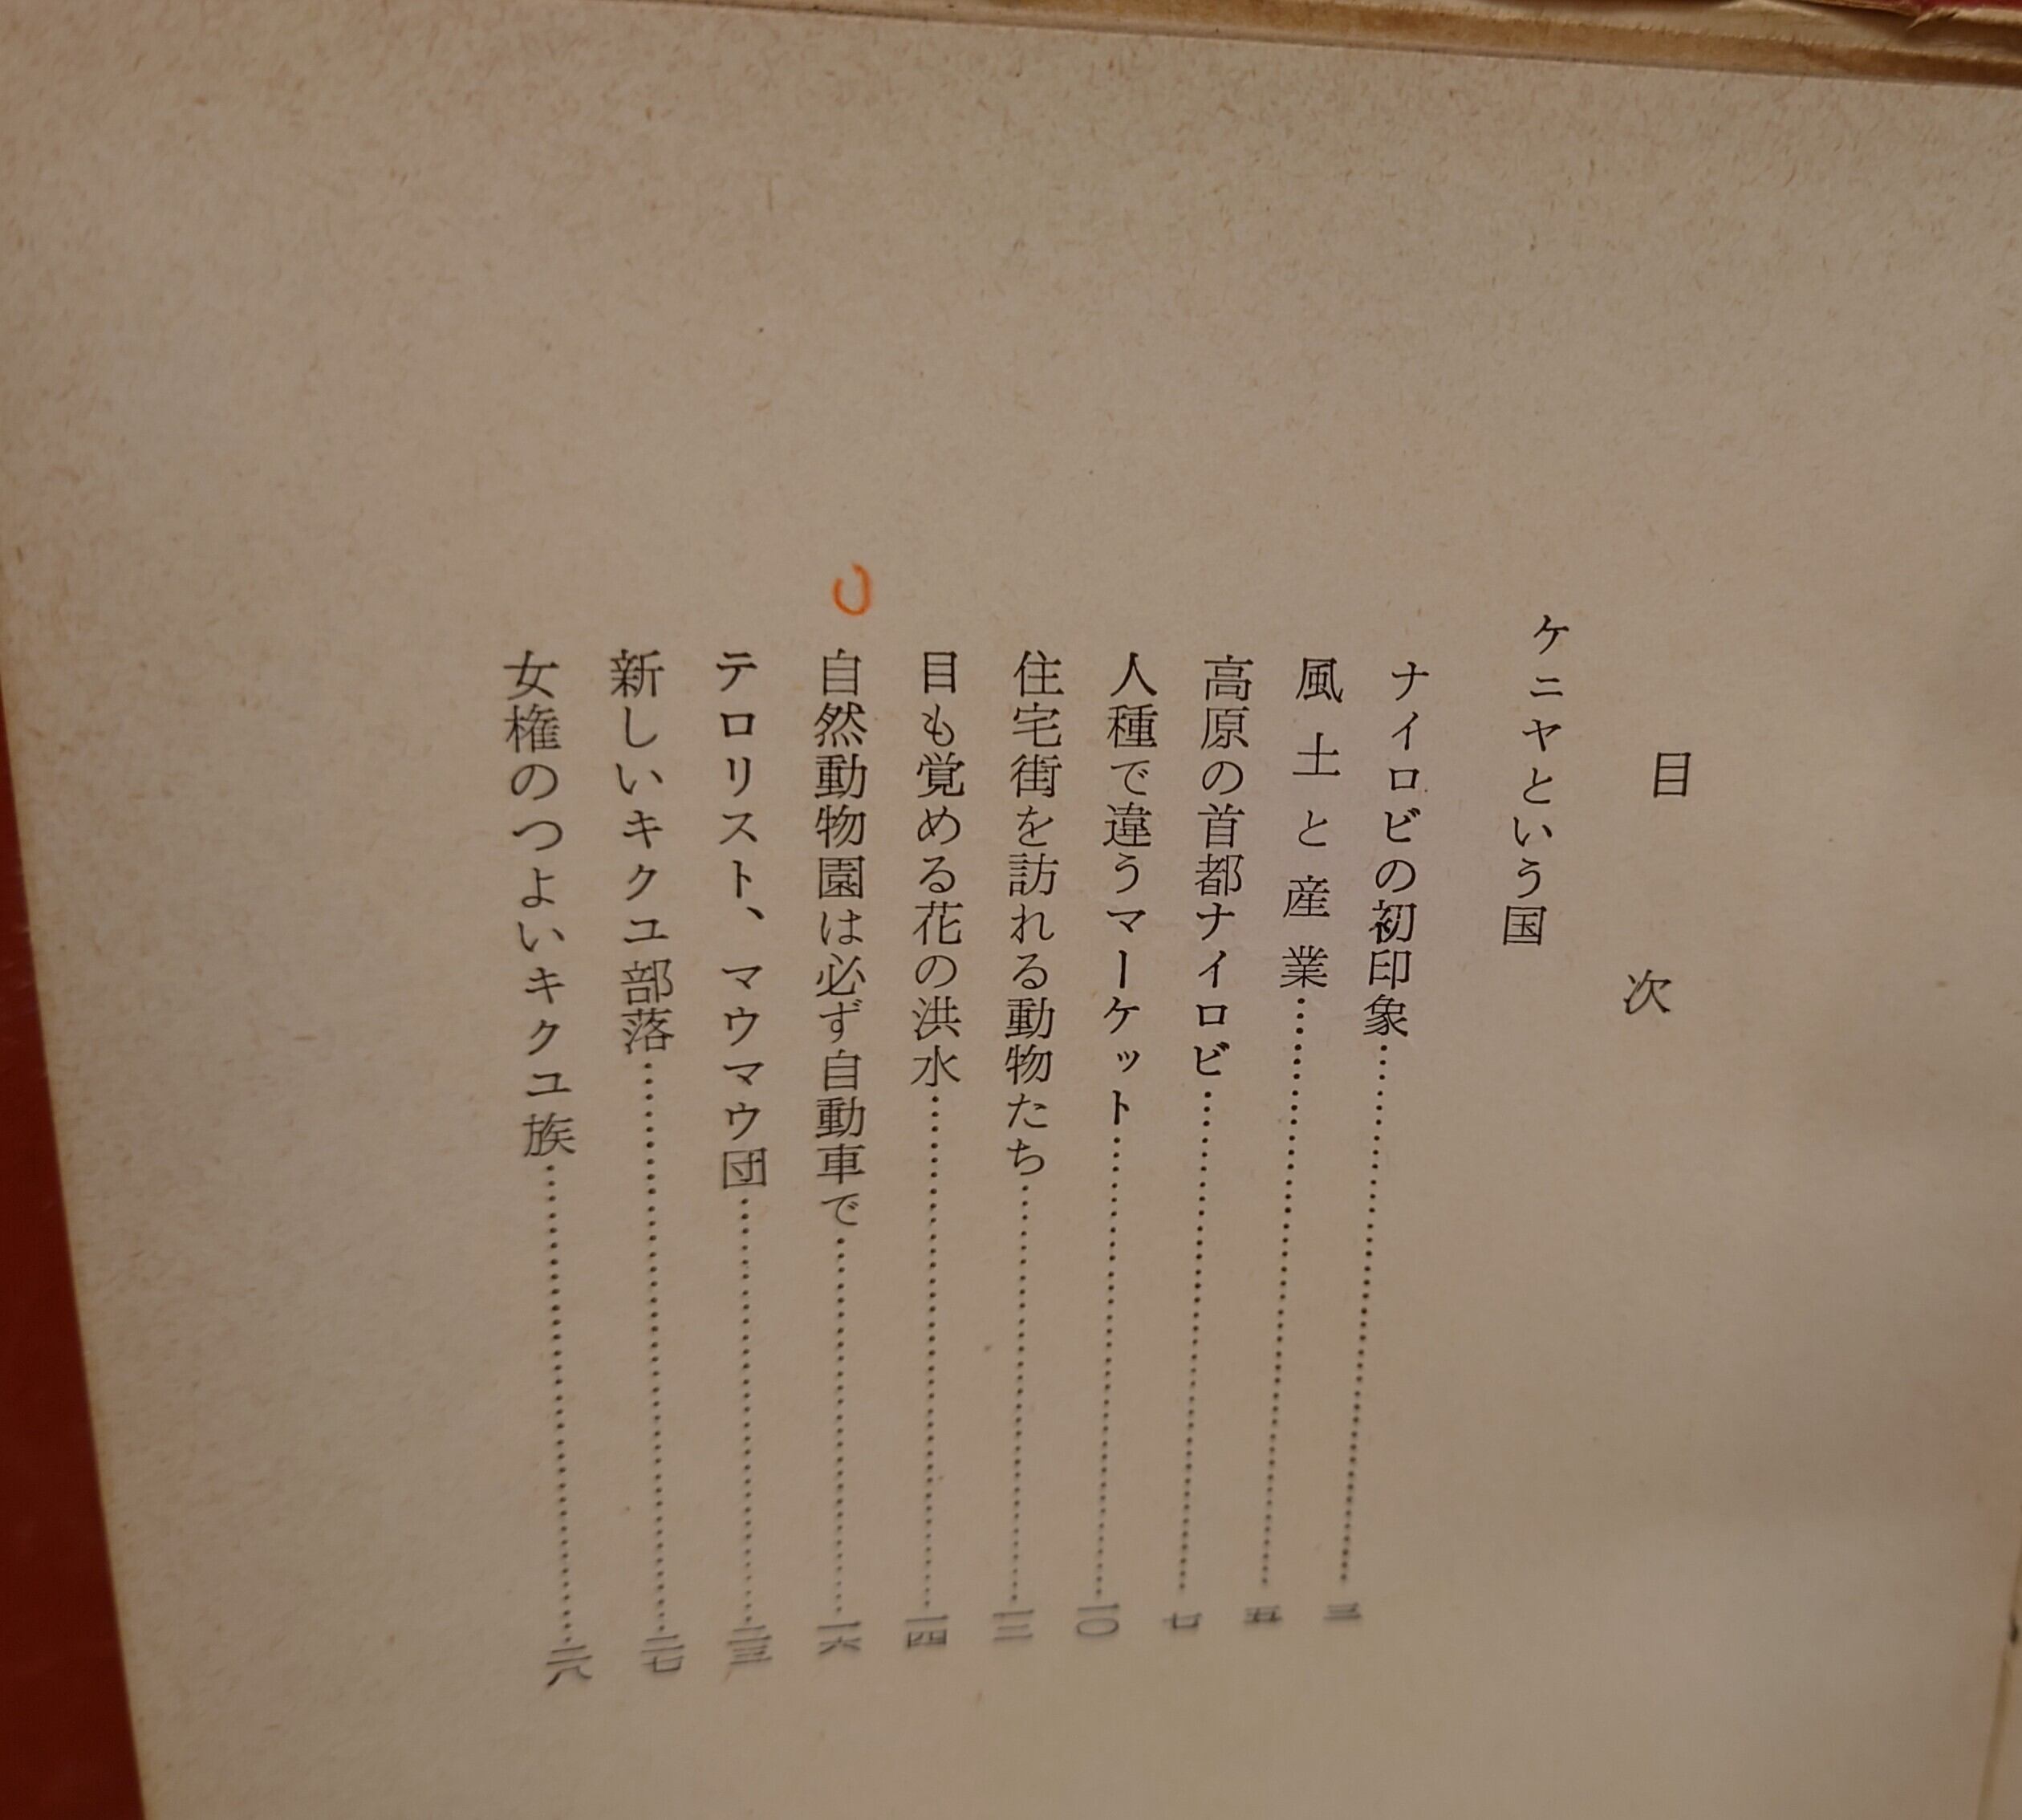 目次
ケニヤという国
ナイロビの初印象……三
風土と産業……五
高原の首都ナイロビ……七
人種で違うマーケット……一〇
住宅街を訪れる動物たち……一二
目も覚める花の洪水……一四
自然動物園は必ず自動車で……一六
テロリスト、マウマウ団……二三
新しいキクユ部落……二七
女権のつよいキクユ族……二八